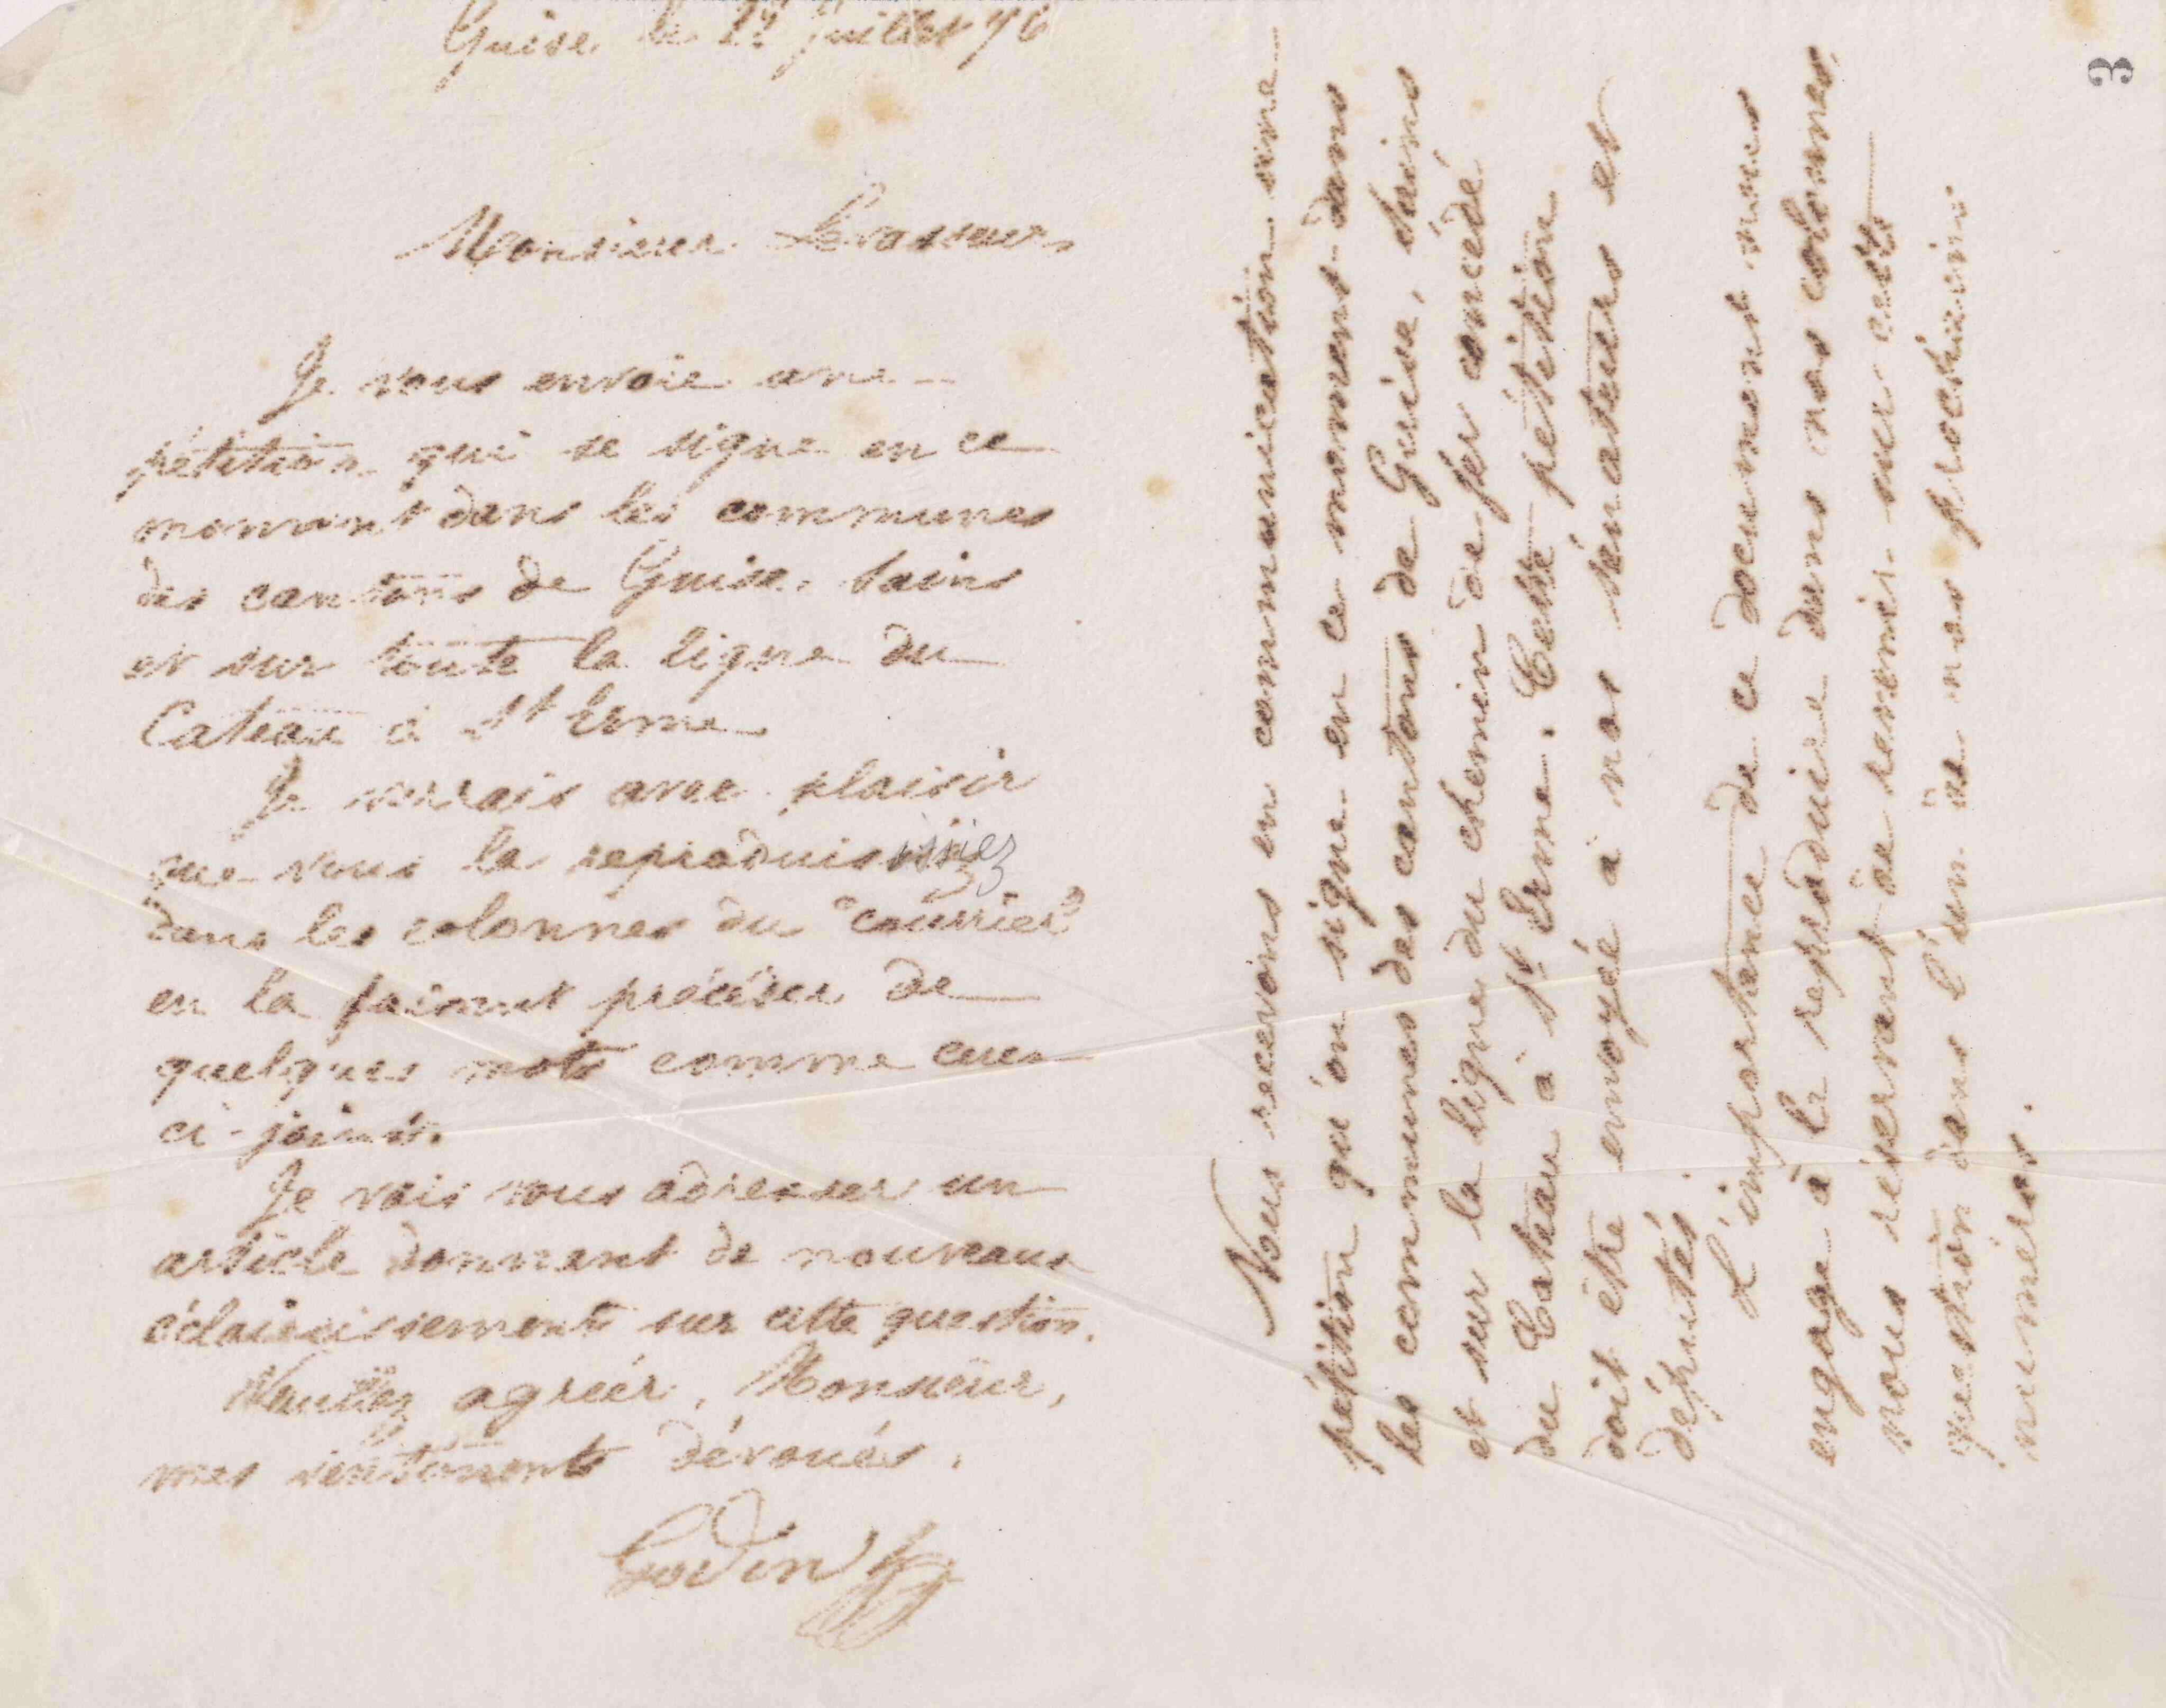 Guise le juillet 76
Monsieur Levasseur,
Je vous envoie une
pétition qui se signe en ce
moment dans les communes
des cantons de Guise, Sains
et sur toute la ligne du
Cateau à St Erme
Je verrais avec plaisir
que vous la reproduisissiez
dans les colonnes du "courrier"
en la faisant précéder de
quelques mots comme ceux
ci-joints.
Je vais vous adresser un
article donnant de nouveaux
éclaircissements sur cette question.
Veuillez agréer, Monsieur,
mes sentiments dévoués.
Godin
3
Nous recevons en communication une
pétition qu'on signe en ce moment dans
les communes des cantons de Guise, Sains
et sur la ligne du chemin de fer concédé
du Cateau à St Erme. Cette pétition
doit être envoyée à nos sénateurs et
députés.
L'importance de ce document nous
engage à le reproduire dans nos colonnes,
nous réservant de revenir sur cette
question dans l'un de nos prochains
numéros.